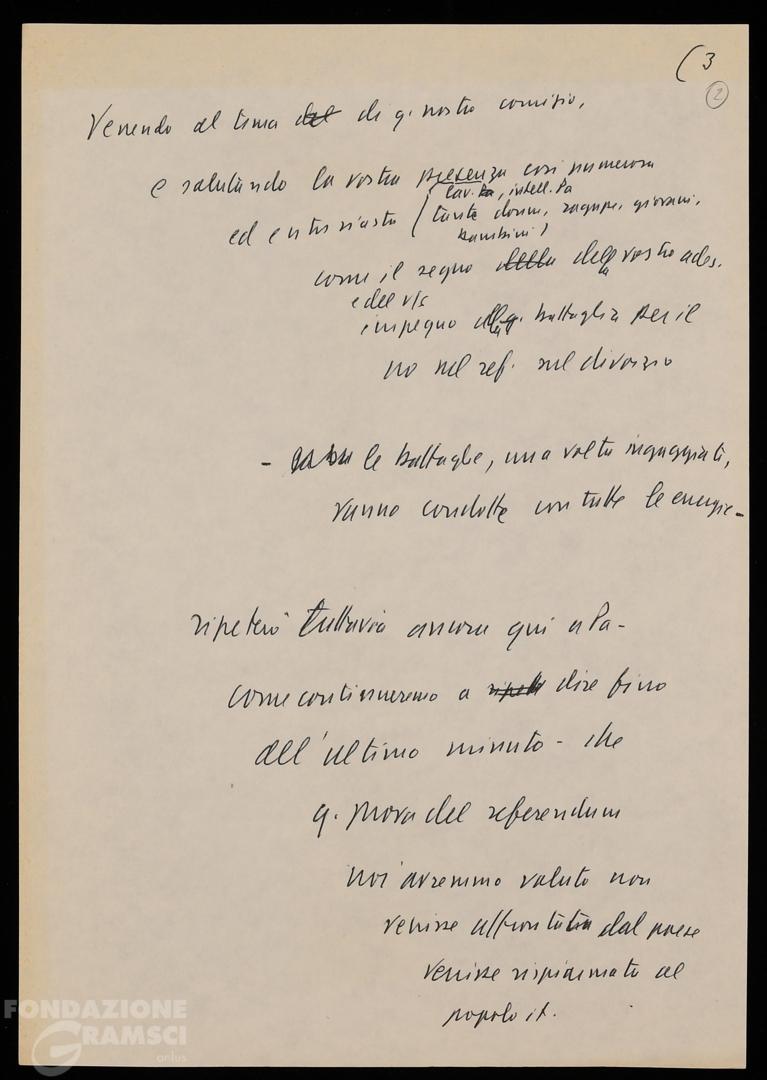 (3
2
Venendo al tema del di q. nostro comizio,
e salutando la vostra presenza così numerosa
lav. Pa, intell. Pa
ed entusiasta (tante donne, ragazze, giovani,
bambini)
come il segno della della vostra ades.
e del v/s
impegno alla q. battaglia per il
no nel ref. sul divorzio
- le battaglie, una volta ingaggiate,
vanno condotte con tutte le energie -
ripeterò tuttavia ancora qui a Pa -
come continueremo a dire fino
all'ultimo minuto - che
q. prova del referendum
noi avremmo voluto non
venisse affrontata dal paese
venisse risparmiata al
popolo it.
FONDAZIONE
GRAMSCI
onlus